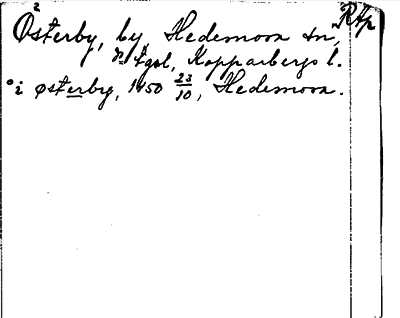 RAp
Österby, by Hedemora sn,
Kopparbergs l.
i østerby, 1450 23/10, Hedemora.